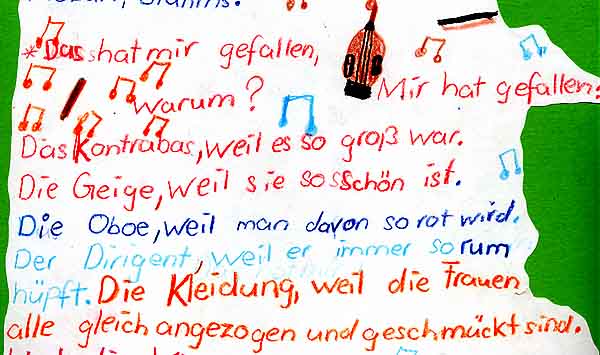 Mozart, Brahms.
*Das hat mir gefallen,
warum? Mir hat gefallen:
Das Kontrabas, weil es so groß war.
Die Geige, weil sie so schön ist.
Die Oboe, weil man davon so rot wird.
Der Dirigent, weil er immer so rum
hüpft. Die Kleidung, weil die Frauen
alle gleich angezogen und geschmückt sind.